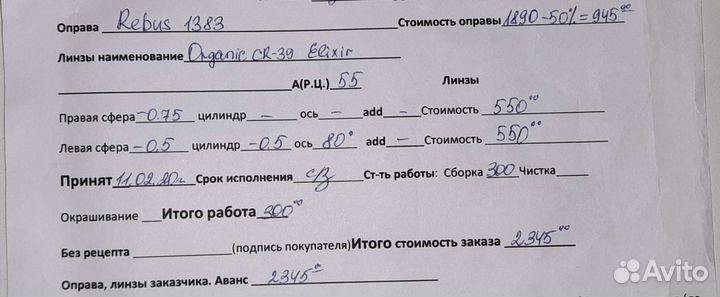 Оправа Rebus 1383 Стоимость оправы 1890-50%=945⁰⁰
Линзы наименование Organic CR-39 Elixir
А(Р.Ц.) 55 Линзы
Правая сфера -0.75 цилиндр – ось – add – Стоимость 550⁰⁰
Левая сфера -0,5 цилиндр -0.5 ось 80° add – Стоимость 550⁰⁰
Принят 11.02.20г. Срок исполнения с/з Ст-ть работы: Сборка 300 Чистка
Окрашивание Итого работа 300⁰⁰
Без рецепта (подпись покупателя) Итого стоимость заказа 2345⁰⁰
Оправа, линзы заказчика. Аванс 2345⁰⁰
Avito